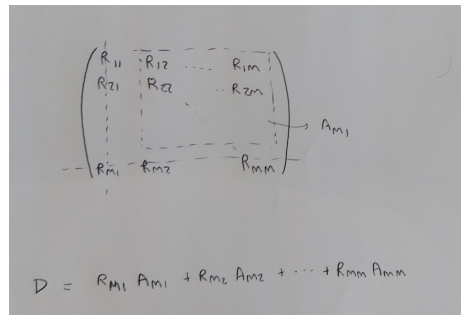 R11 R12 .... R1M
R21 R22 .. R2M
→ AM1
RM1 RM2 RMM
D = RM1 AM1 + RM2 AM2 + ... + RMM AMM